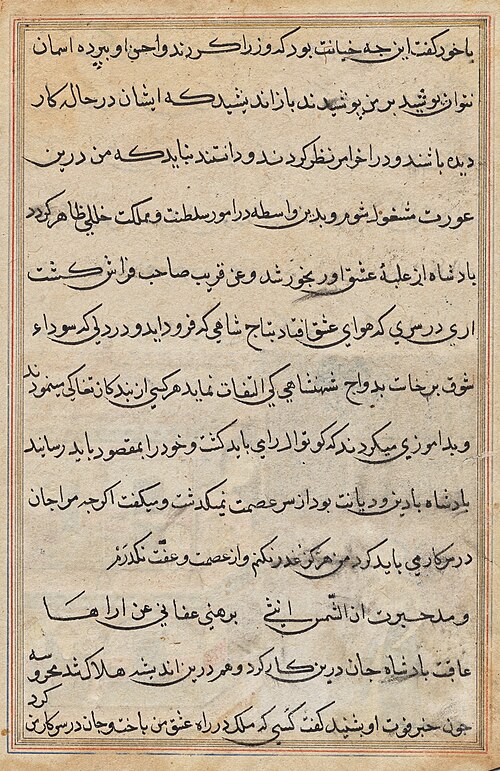 با خود گفت این چه خیانت بود که وزرا کردند و احن او بپرده اسمان
نتوان پوشید بر من پوشیدند باز اندیشید که ایشان در حال کار
دیده باشند و در اواخر امر نظر کردند و دانستند نباید که من درین
عورت مشغول شوم و بدین واسطه در امور سلطنت و مملکت خللی ظاهر کردد
بادشاه از غلبهٔ عشق او رنجور شد و عن قریب صاحب فراش کشت
اری در سری که هوای عشق افتد بتاج شاهی که فرود اید و در دلی که سوداء
شوق برخاست بدواج شهنشاهی کی التفات نماید هر کسی از بندکان تعاکی می‌نمودند
و بد اموزی میکردند که کوتوال را می باید کشت و خود را بمقصود باید رسانید
بادشاه با دین و دیانت بود از سر عصمت نمیکذشت و میکفت اکر چه مرا جان
در سر کار می باید کرد من هرکز غدر نکنم و از عصمت و عفّت نکذرم
و مذ خبرت ان الشمس انثی برهنی عفافی عن اراها
عاقبت بادشاه جان درین کار کرد و هم درین اندیشه هلاک شد محروسه
چون خبر فوت او شنید کفت کسی که ملک در راه عشق من باخت و جان در سر کار من کرد